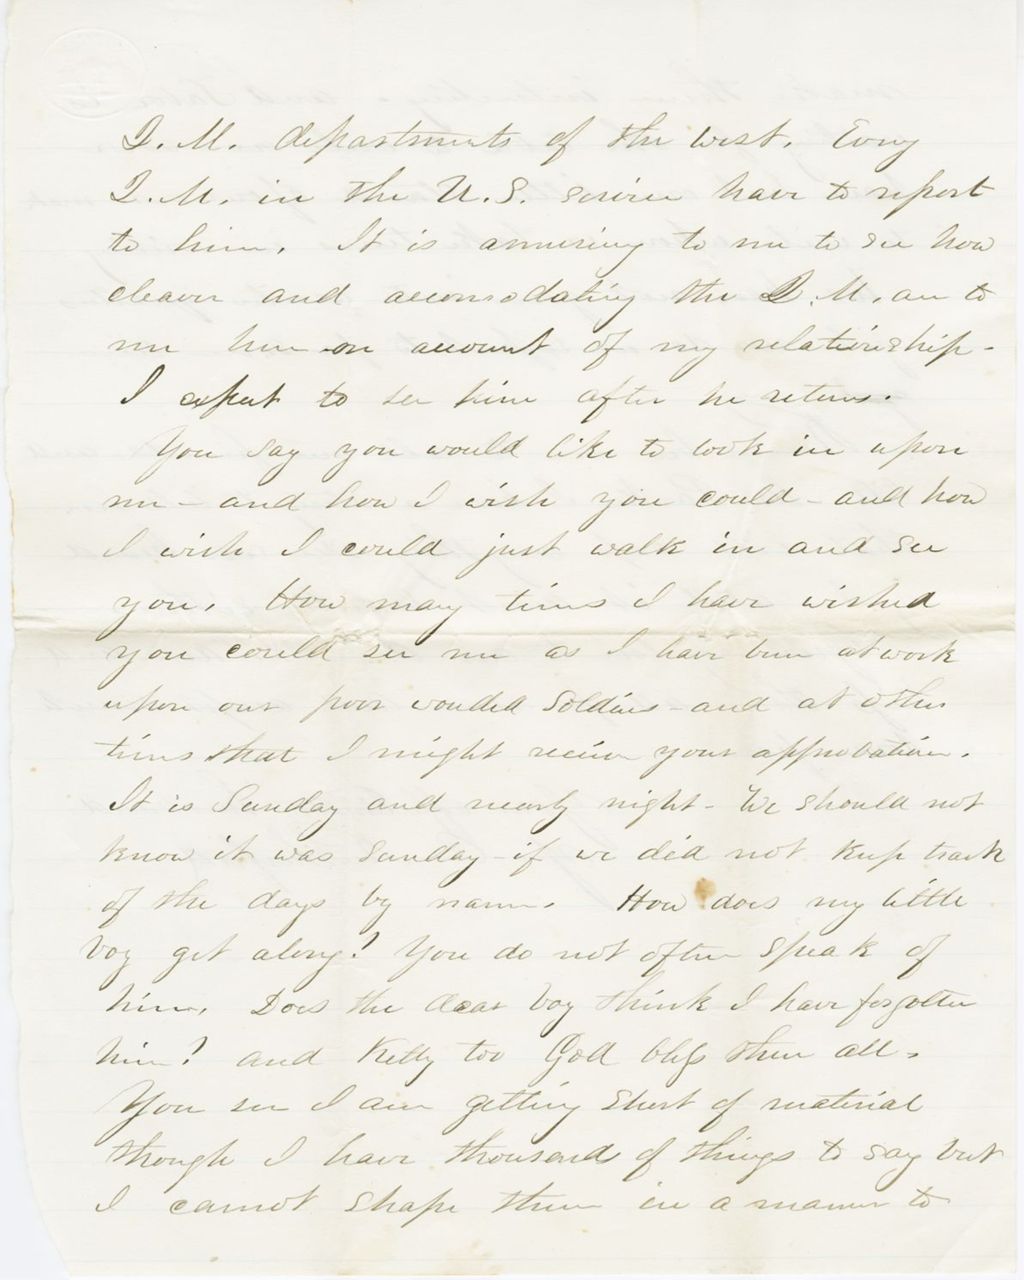 Q. M. departments of the west. Every
Q. M. in the U. S. service have to report
to him. It is amusing to me to see how
cleaver and accomodating the Q. M. are to
me here on account of my relationship -
I expect to see him after he returns.
You say you would like to look in upon
me - and how I wish you could - and how
I wish I could just walk in and see
you. How many times I have wished
you could see me as I have been at work
upon our poor wouded soldiers - and at other
times that I might receive your approbation.
It is Sunday and nearly night - We should not
know it was Sunday - if we did not keep track
of the days by name. How does my little
boy get along? You do not often speak of
him. Does the dear boy think I have forgotten
him? and Kitty too God bless them all.
You see I am getting short of material
though I have thousands of things to say but
I cannot shape them in a manner to